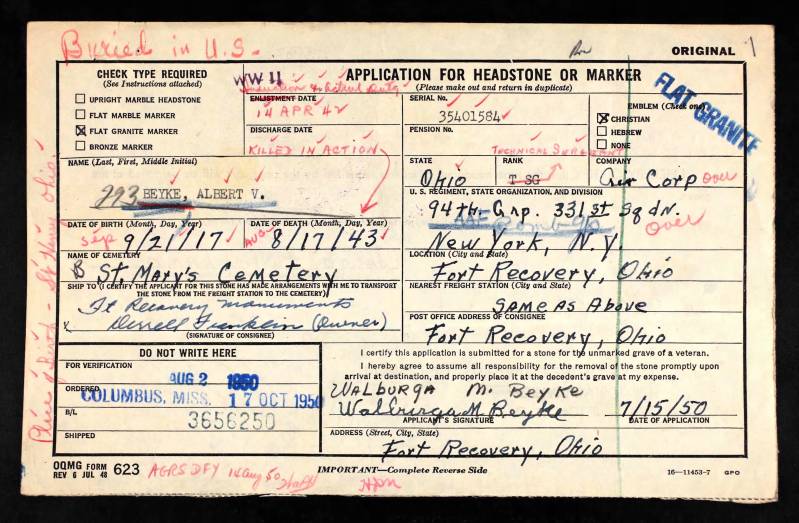 Buried in U.S.
ORIGINAL 1
CHECK TYPE REQUIRED
(See Instructions attached)
UPRIGHT MARBLE HEADSTONE
FLAT MARBLE MARKER
FLAT GRANITE MARKER
BRONZE MARKER
WW II
APPLICATION FOR HEADSTONE OR MARKER
(Please make out and return in duplicate)
Induction & Active Duty
ENLISTMENT DATE
14 APR 42
DISCHARGE DATE
KILLED IN ACTION
SERIAL No.
35401584
PENSION No.
EMBLEM (Check one)
CHRISTIAN
HEBREW
NONE
FLAT GRANITE
TECHNICAL SERGEANT
NAME (Last, First, Middle Initial)
293 BEYKE, ALBERT V.
STATE
Ohio
RANK
T SG
COMPANY
Air Corp over
U. S. REGIMENT, STATE ORGANIZATION, AND DIVISION
94th Grp. 331st Sqdn.
over
New York, N.Y.
DATE OF BIRTH (Month, Day, Year)
Sep 9/21/17
DATE OF DEATH (Month, Day, Year)
AUG 8/17/43
NAME OF CEMETERY
B St. Mary's Cemetery
LOCATION (City and State)
Fort Recovery, Ohio
SHIP TO (I CERTIFY THE APPLICANT FOR THIS STONE HAS MADE ARRANGEMENTS WITH ME TO TRANSPORT
THE STONE FROM THE FREIGHT STATION TO THE CEMETERY)
Ft Recovery Monuments
x Derrell Franklin (Owner)
(SIGNATURE OF CONSIGNEE)
NEAREST FREIGHT STATION (City and State)
SAME AS Above
POST OFFICE ADDRESS OF CONSIGNEE
Fort Recovery, Ohio
DO NOT WRITE HERE
FOR VERIFICATION
AUG 2 1950
ORDERED
COLUMBUS, MISS. 17 OCT 1950
B/L
3656250
SHIPPED
I certify this application is submitted for a stone for the unmarked grave of a veteran.
I hereby agree to assume all responsibility for the removal of the stone promptly upon
arrival at destination, and properly place it at the decedent's grave at my expense.
WALBURGA M. BEYKE
Walburga M Beyke 7/15/50
APPLICANT'S SIGNATURE DATE OF APPLICATION
ADDRESS (Street, City, State)
Fort Recovery, Ohio
OQMG FORM 623
REV 6 JUL 48
AGRS DFY 14 Aug 50
IMPORTANT—Complete Reverse Side
16—11453-7 GPO
Place of Birth - St Henry Ohio.